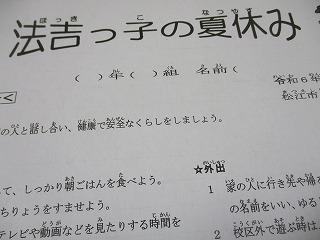 法吉っ子の夏休み
( )年( )組 名前(
令和6年
松江市
の人と話し合い、健康で安全なくらしをしましょう。
て、しっかり朝ごはんを食べよう。
ちりょうをすませよう。
テレビや動画などを見たりする時間を
☆外出
1 家の人に行き先や帰る
の名前をいい、ゆるし
2 校区外で遊ぶ時は、